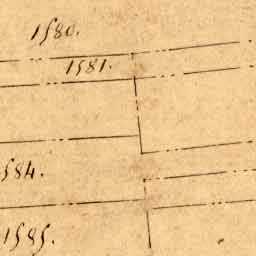 1580.
1581.
1584.
1585.